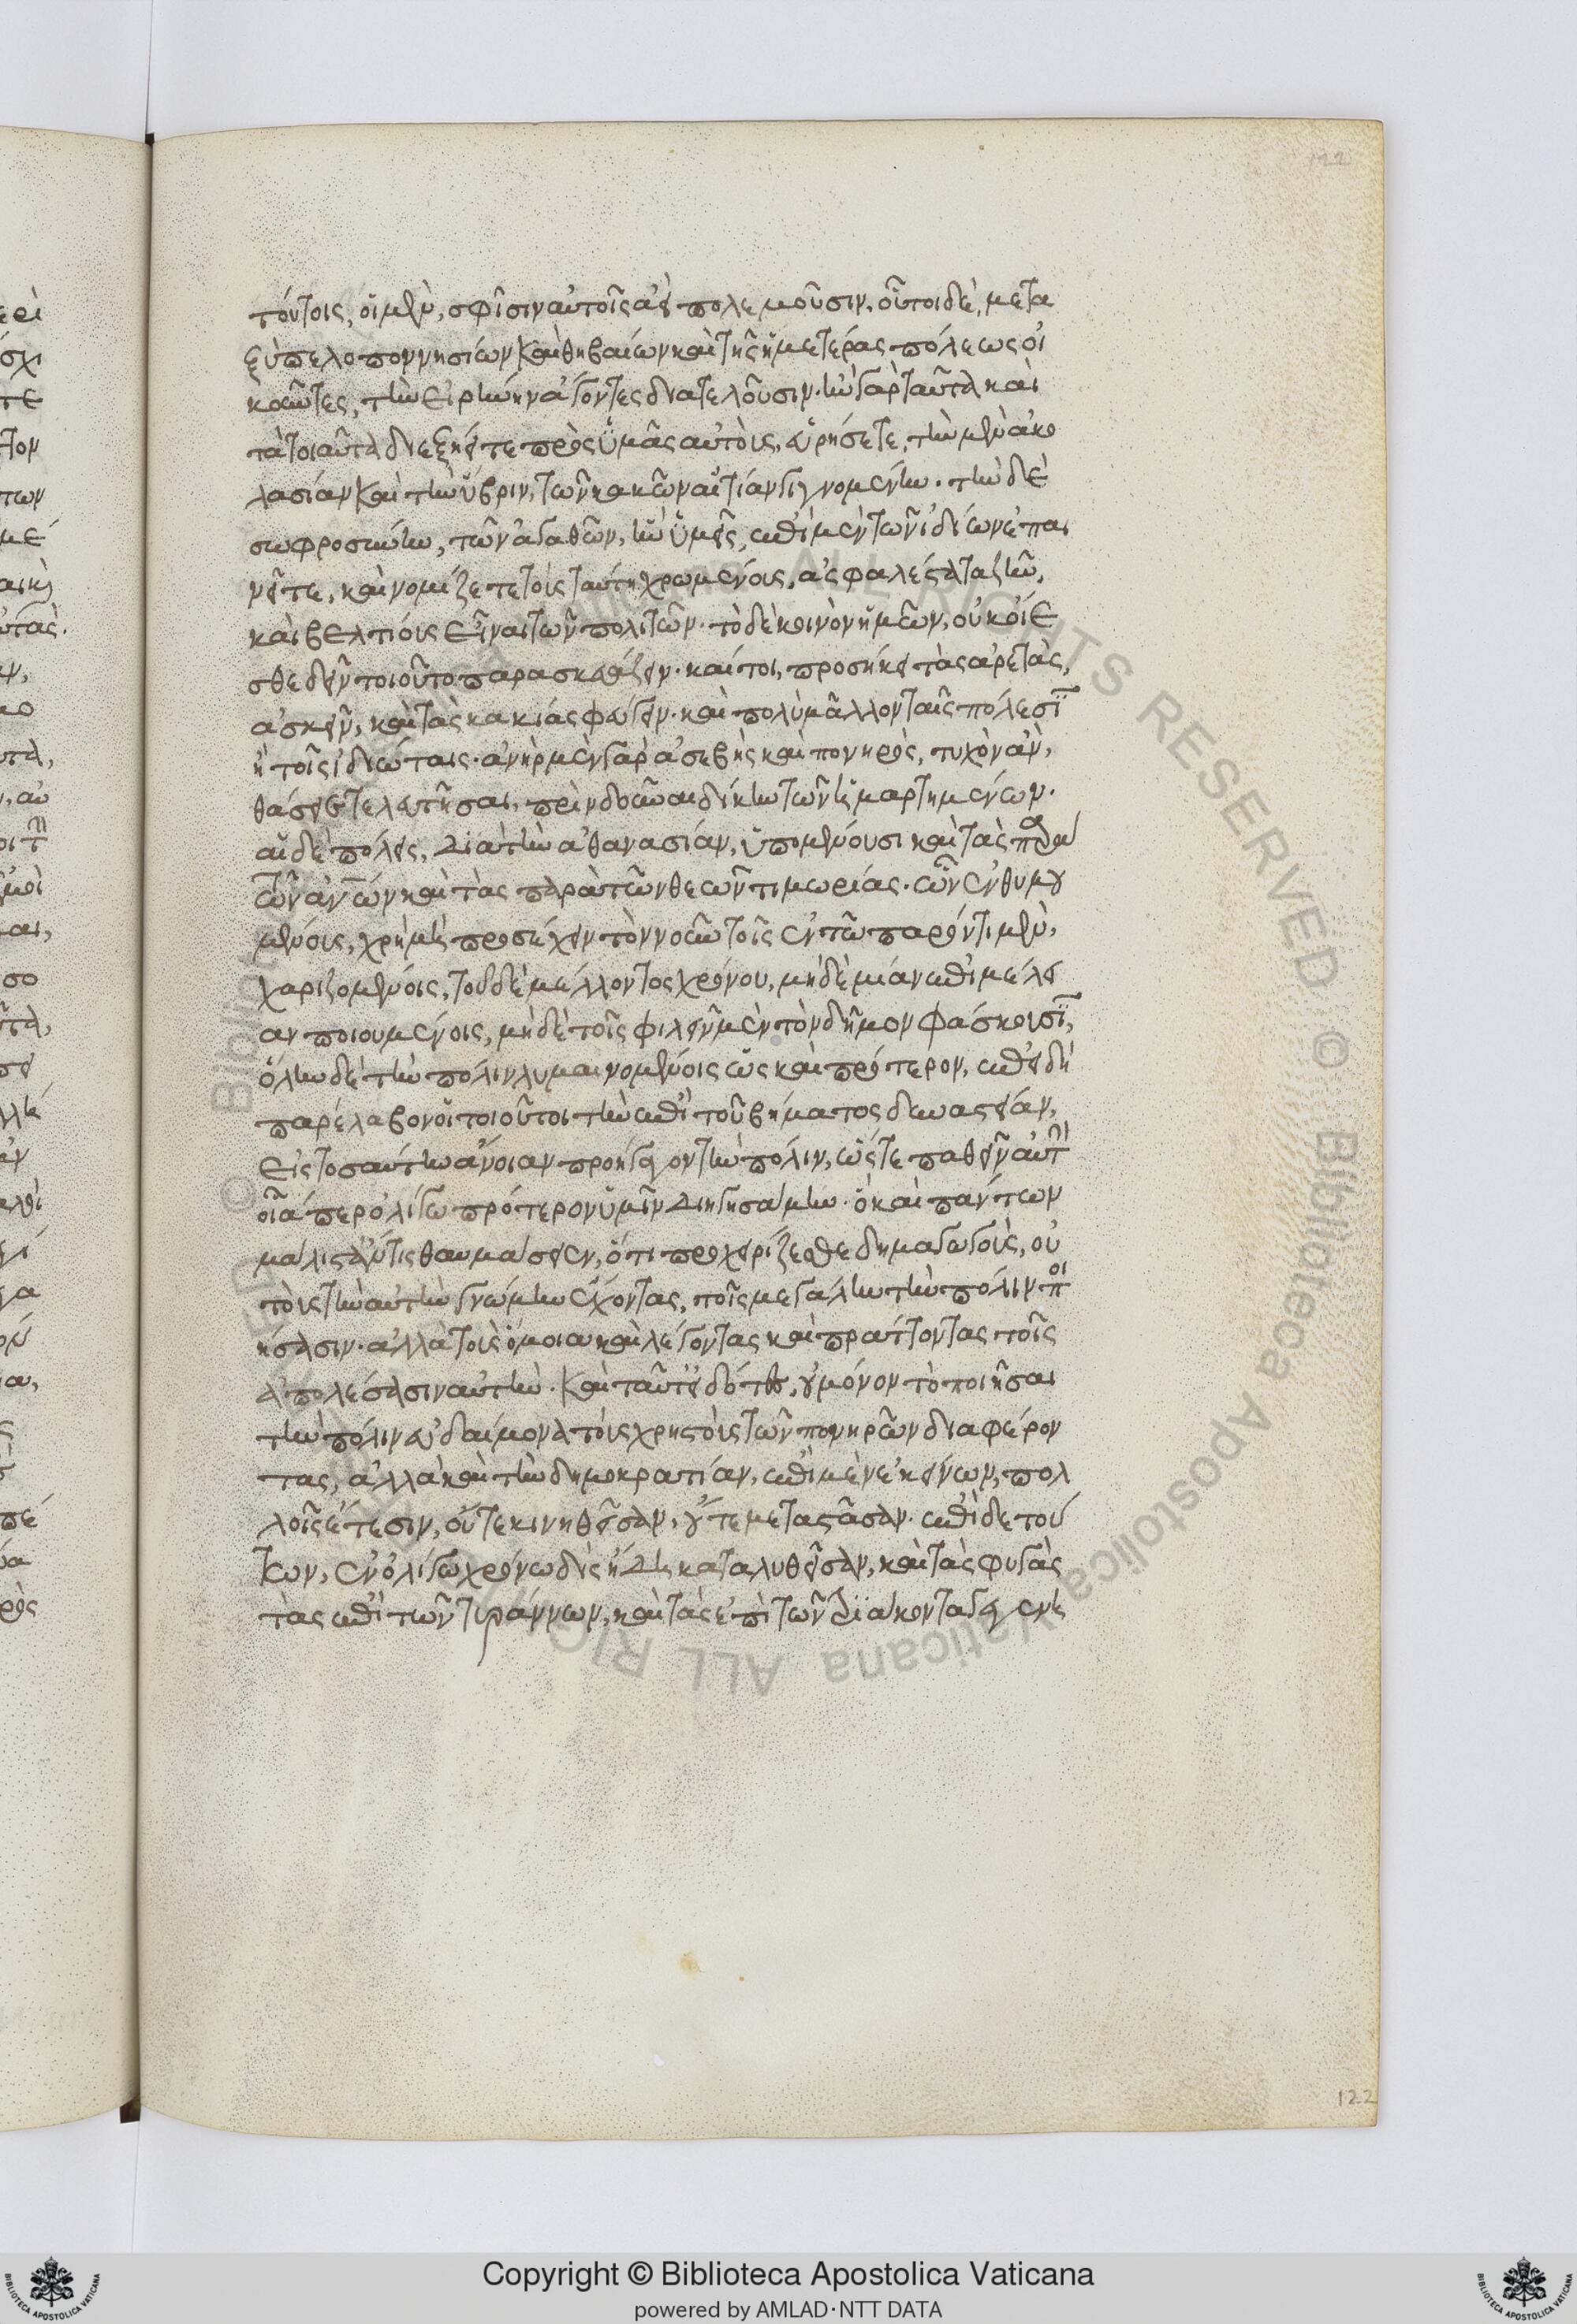 τούτοις, οἱ μὲν, σφίσιν αὐτοῖς ἀεὶ πολεμοῦσιν, οὗτοι δὲ, μετα
ξὺ πελοποννησίων καὶ θηβαίων καὶ τῆς ἡμετέρας πόλεως οἰ
κοῦντες, τὴν εἰρήνην ἄγοντες διατελοῦσιν. ἢν γὰρ ταῦτα καὶ
τὰ τοιαῦτα διεξίητε πρὸς ὑμᾶς αὐτοὺς, εὑρήσετε, τὴν μὲν ἀκο
λασίαν καὶ τὴν ὕβριν, τῶν κακῶν αἰτίαν γιγνομένην. τὴν δὲ
σωφροσύνην, τῶν ἀγαθῶν, ἣν ὑμεῖς, ἐπὶ μὲν τῶν ἰδίων ἐπαι
νεῖτε, καὶ νομίζετε τοὺς ταύτῃ χρωμένους, ἀσφαλέστατα ζῆν,
καὶ βελτίους εἶναι τῶν πολιτῶν. τὸ δὲ κοινὸν ἡμῶν, οὐκ οἴε
σθε δεῖν τοιοῦτο παρασκευάζειν. καίτοι, προσήκει τὰς ἀρετὰς,
ἀσκεῖν, καὶ τὰς κακίας φεύγειν. καὶ πολὺ μᾶλλον ταῖς πόλεσϊ
ἢ τοῖς ἰδιώταις. ἀνὴρ μὲν γὰρ ἀσεβὴς καὶ πονηρὸς, τυχὸν ἂν,
φθάσειε τελευτήσας, πρὶν δοῦναι δίκην τῶν ἡμαρτημένων.
αἱ δὲ πόλεις, διὰ τὴν ἀθανασίαν, ὑπομένουσι καὶ τὰς πα
τῶν ἀνων καὶ τὰς παρὰ τῶν θεῶν τιμωρίας. ὧν ἐνθυμου
μένους, χρὴ μὴ προσέχειν τὸν νοῦν τοῖς ἐν τῷ παρόντι μὲν,
χαριζομένοις, τοῦ δὲ μέλλοντος χρόνου, μηδεμίαν ἐπιμέλει
αν ποιουμένοις, μηδὲ τοῖς φιλεῖν μὲν τὸν δῆμον φάσκουσϊ,
ὅλην δὲ τὴν πόλιν λυμαινομένοις ὡς καὶ πρότερον, ἐπειδὴ
παρέλαβον οἱ τοιοῦτοι τὴν ἐπὶ τοῦ βήματος δυναστείαν,
εἰς τοσαύτην ἄνοιαν προήγαγον τὴν πόλιν, ὥστε παθεῖν αὐτὴν
οἷάπερ ὀλίγῳ πρότερον ὑμῖν διηγησάμην. ὃ καὶ πάντων
μάλιστ' ἄν τις θαυμάσειεν, ὅτι προχειρίζεσθε δημαγωγοὺς, οὐ
τοὺς τὴν αὐτὴν γνώμην ἔχοντας, τοῖς μεγάλην τὴν πόλιν ποι
ήσασιν. ἀλλὰ τοὺς ὅμοια καὶ λέγοντας καὶ πράττοντας τοῖς
ἀπολέσασιν αὐτήν. καὶ ταῦτ' εἰδότες, οὐ μόνον τὸ ποιῆσαι
τὴν πόλιν εὐδαίμονα τοὺς χρηστοὺς τῶν πονηρῶν διαφέρον
τας, ἀλλὰ καὶ τὴν δημοκρατίαν, ἐπὶ μὲν ἐκείνων, πολ
λοῖς ἔτεσιν, οὔτε κινηθεῖσαν, οὔτε μεταστᾶσαν. ἐπὶ δὲ τού
των, ἐν ὀλίγῳ χρόνῳ δὶς ἤδη καταλυθεῖσαν, καὶ τὰς φυγὰς
τὰς ἐπὶ τῶν τυράννων, καὶ τὰς ἐπὶ τῶν τριάκοντα γενε
122
Copyright © Biblioteca Apostolica Vaticana
powered by AMLAD·NTT DATA